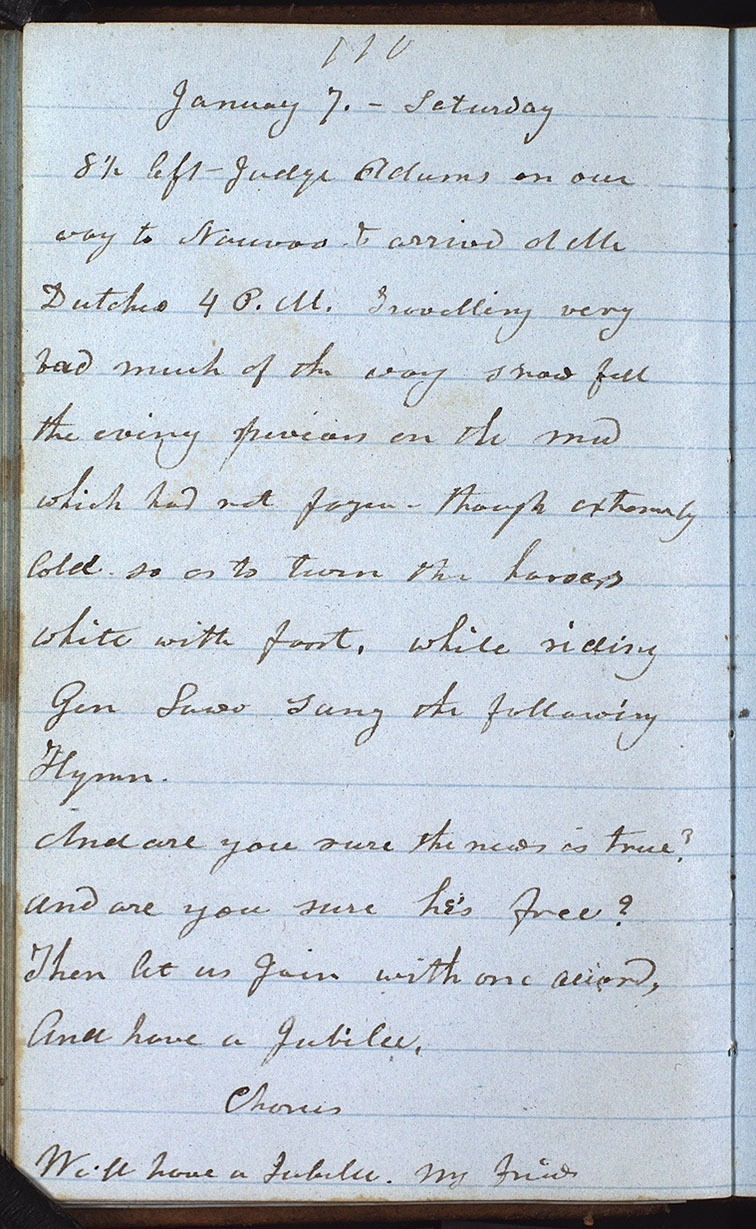 110
January 7. – Saturday
8½ left – Judge Adams on our
way to Nauvoo & arrived at Mr
Dutches 4 P.M. Travelling very
bad much of the way snow fell
the evening previous on the mud
which had not frozen – though extremely
cold. so as to turn the horses
white with frost. while riding
Gen Law sung the following
Hymn.
And are you sure the news is true?
and are you sure he's free?
Then let us join with one accord,
And have a Jubilee.
Chorus
We'll have a Jubilee. My frinds